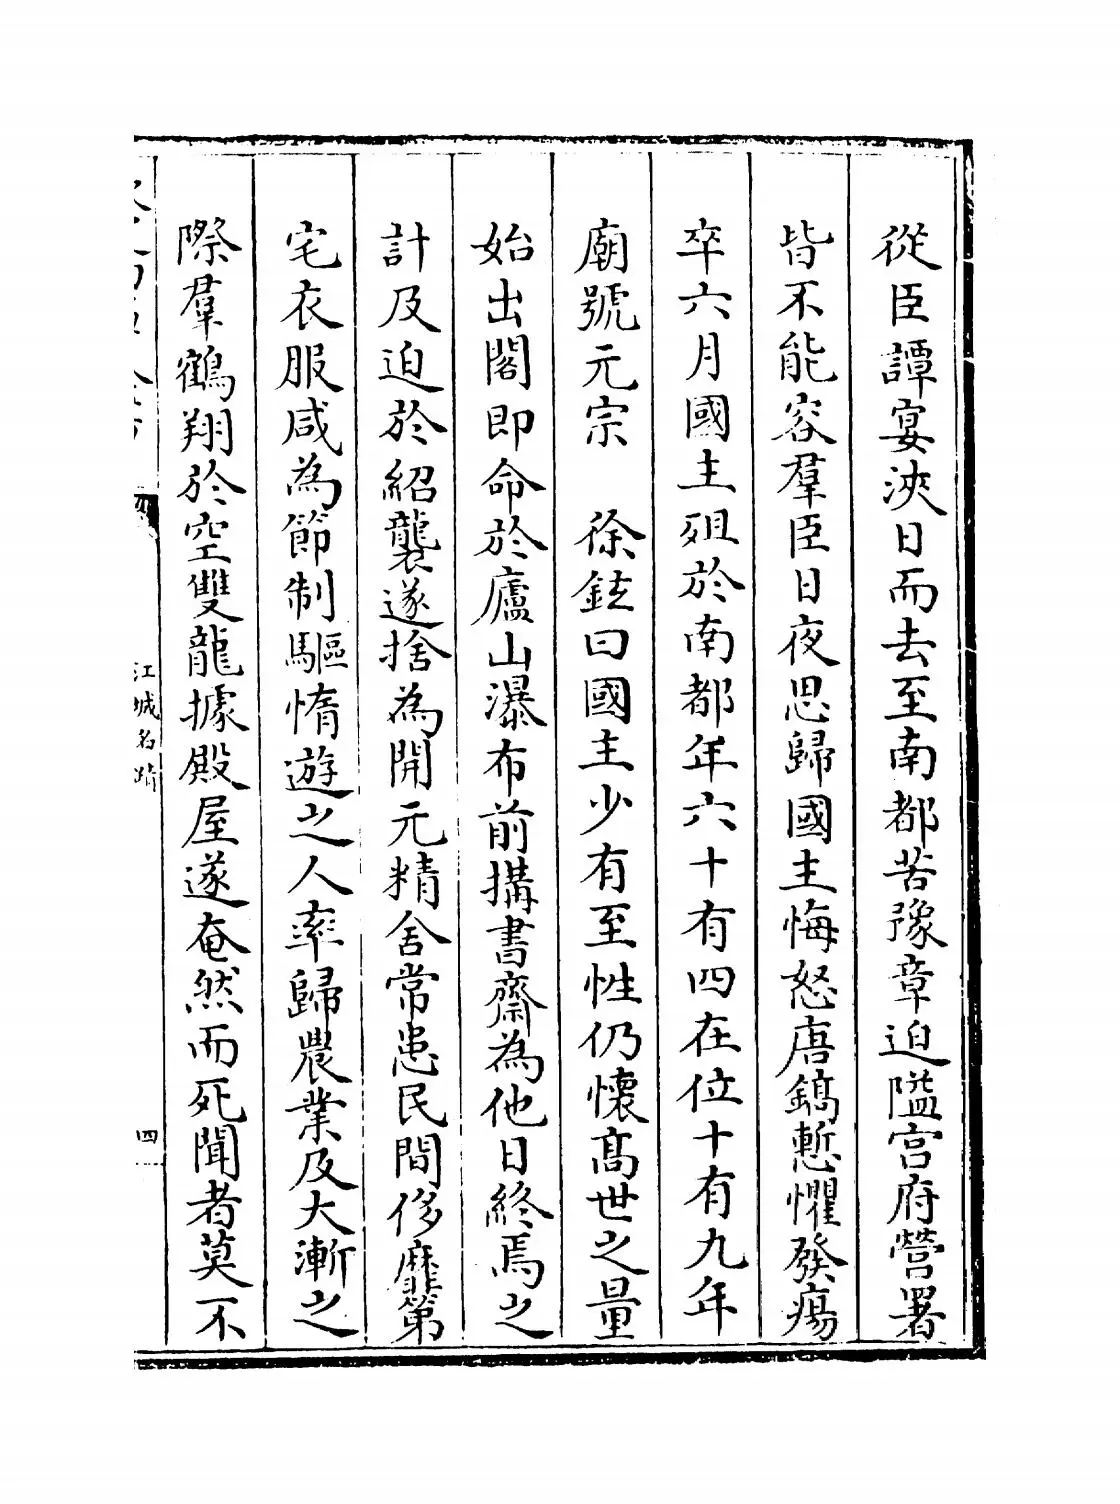 從臣譚宴浹日而去至南都苦豫章迫隘宮府營署
皆不能容羣臣日夜思歸國主悔怒唐鎬慙懼發瘍
卒六月國主殂於南都年六十有四在位十有九年
廟號元宗　徐鉉曰國主少有至性仍懷髙世之量
始出閣即命於廬山瀑布前搆書齋為他日終焉之
計及迫於紹襲遂捨為開元精舍常患民間侈靡第
宅衣服咸為節制驅惰遊之人率歸農業及大漸之
際羣鶴翔於空雙龍據殿屋遂奄然而死聞者莫不
江城名蹟
四